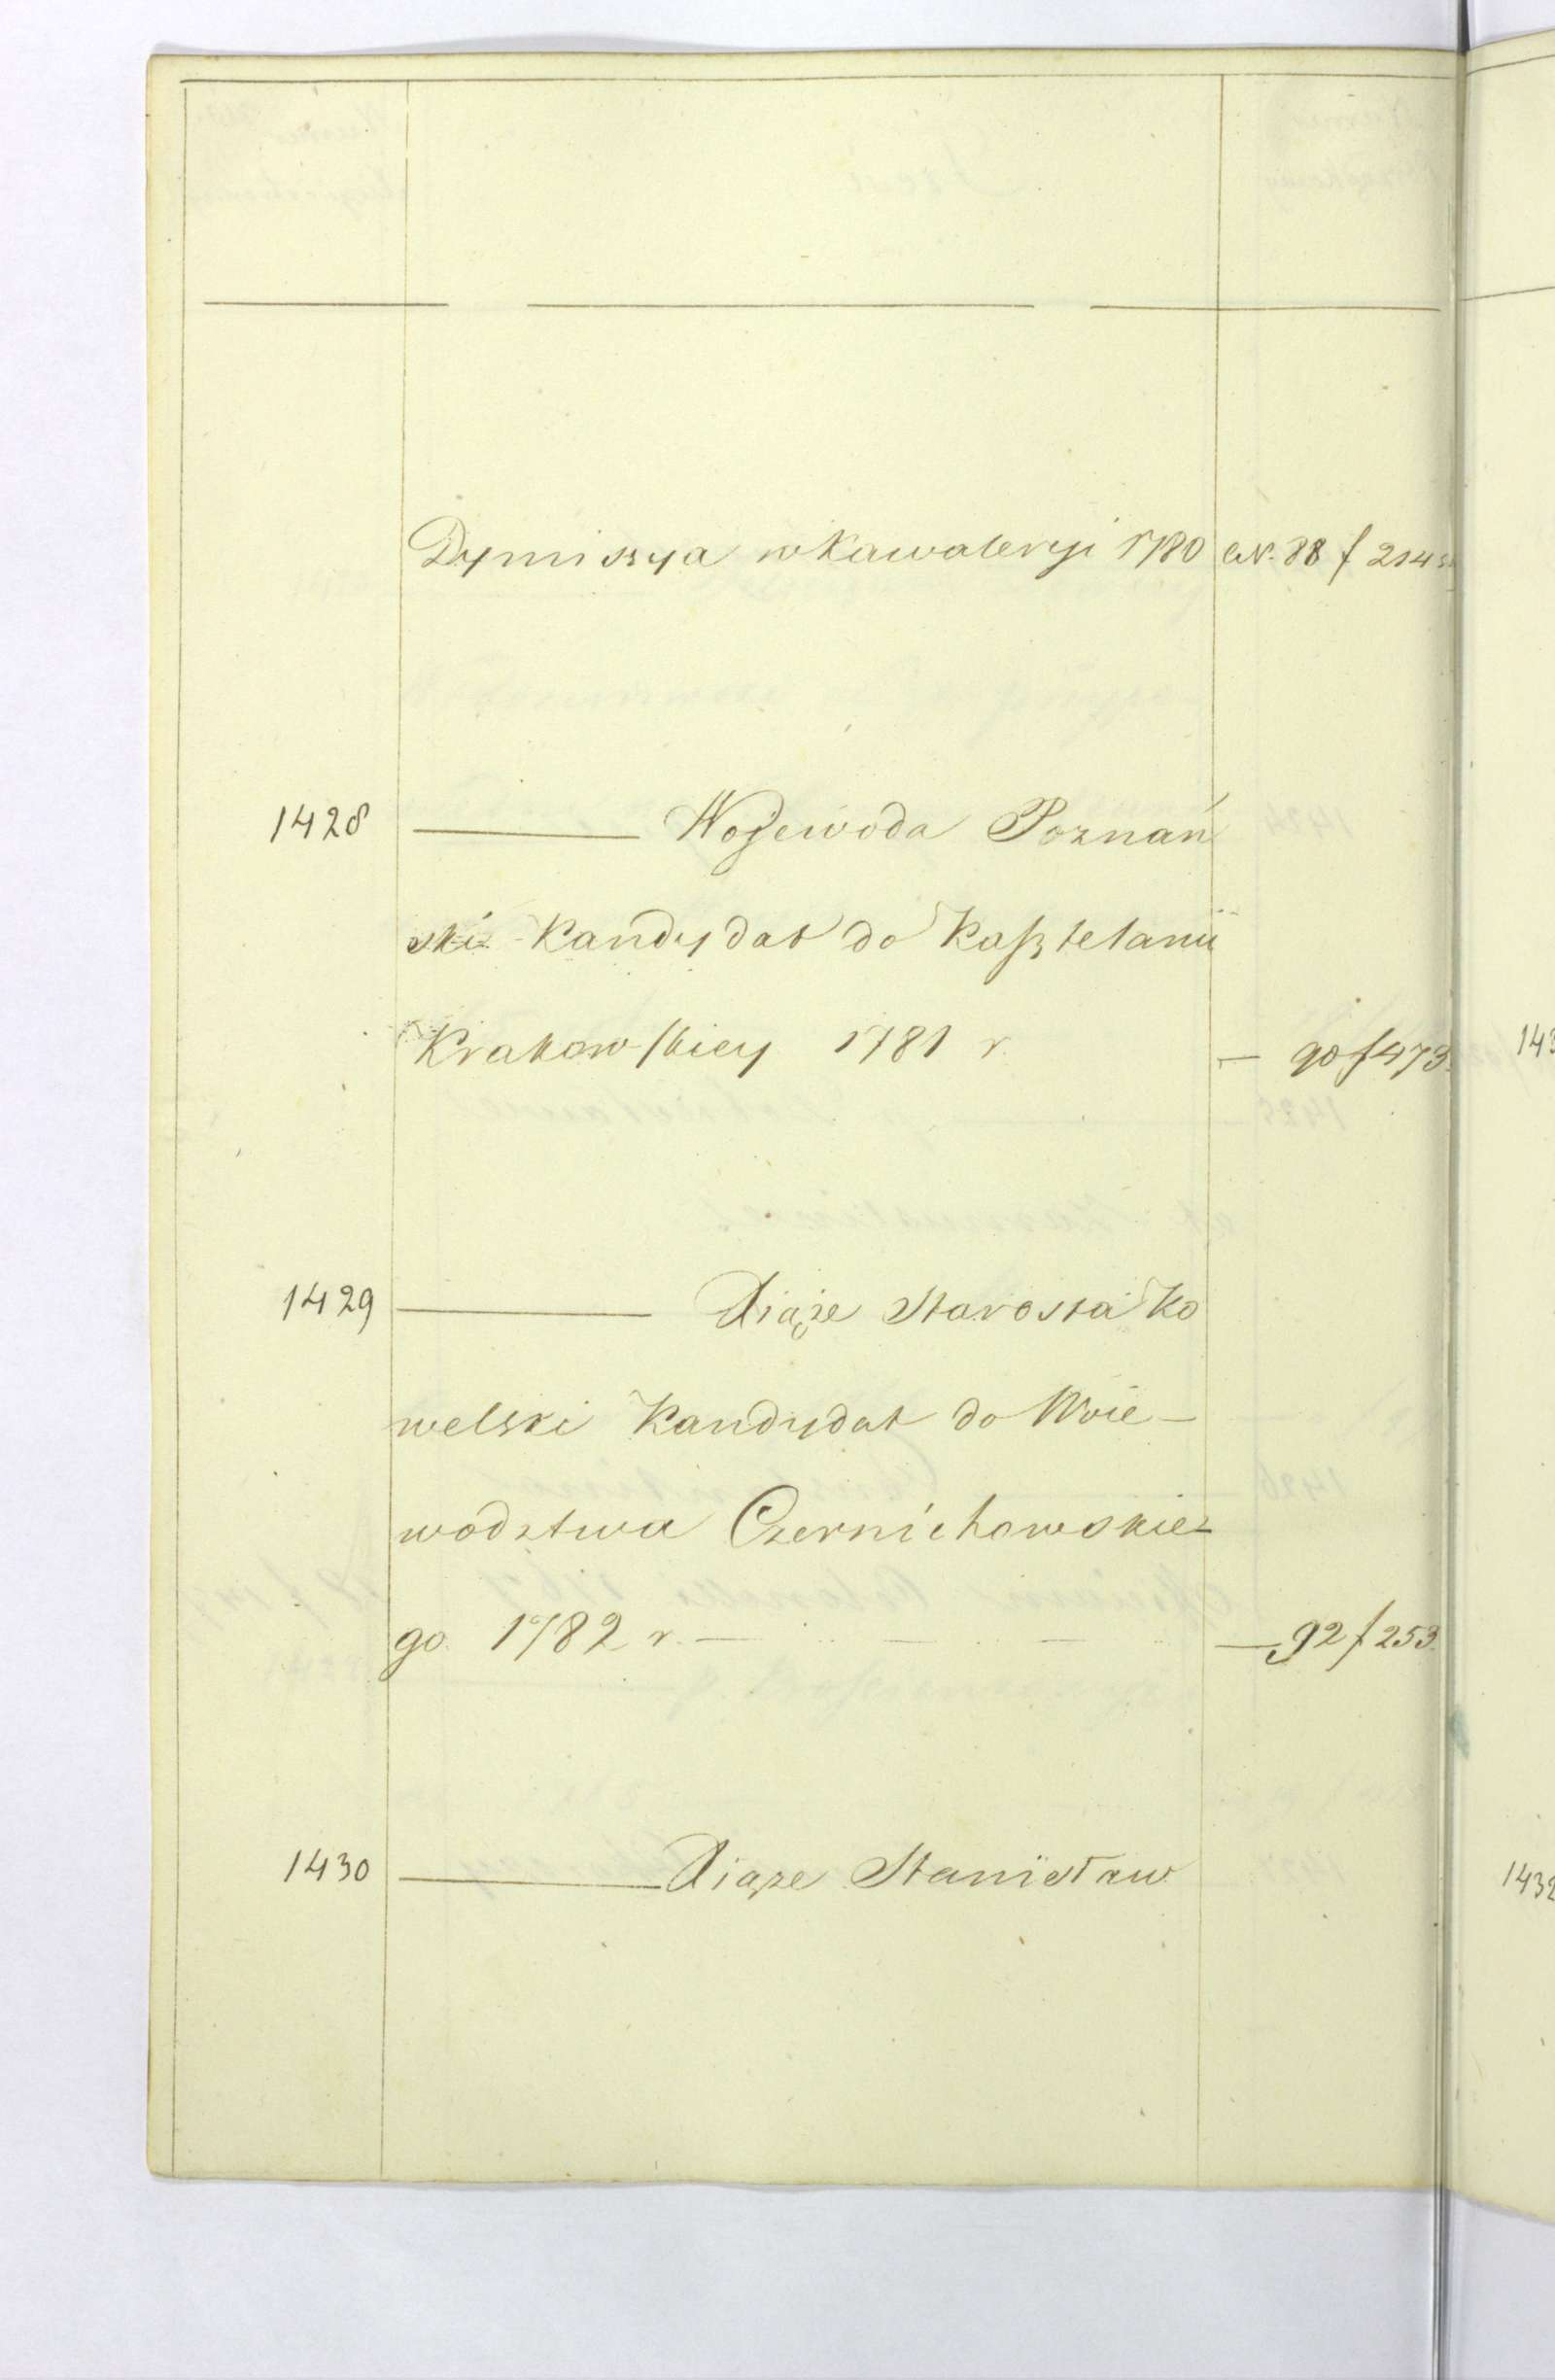 Dymissya w Kawaleryi 1780 N. 88 f 214
1428 ——— Wojewoda Poznań
ski Kandydat do Kasztelanii
Krakowskiey 1781 r. — 90 f 473.
1429 ——— Xiąże Starosta Ko
welski Kandydat do Woie-
wodztwa Czernichowskie-
go 1782 r. — — — — 92 f 253.
1430 ——— Xiąże Stanisław
143
1432